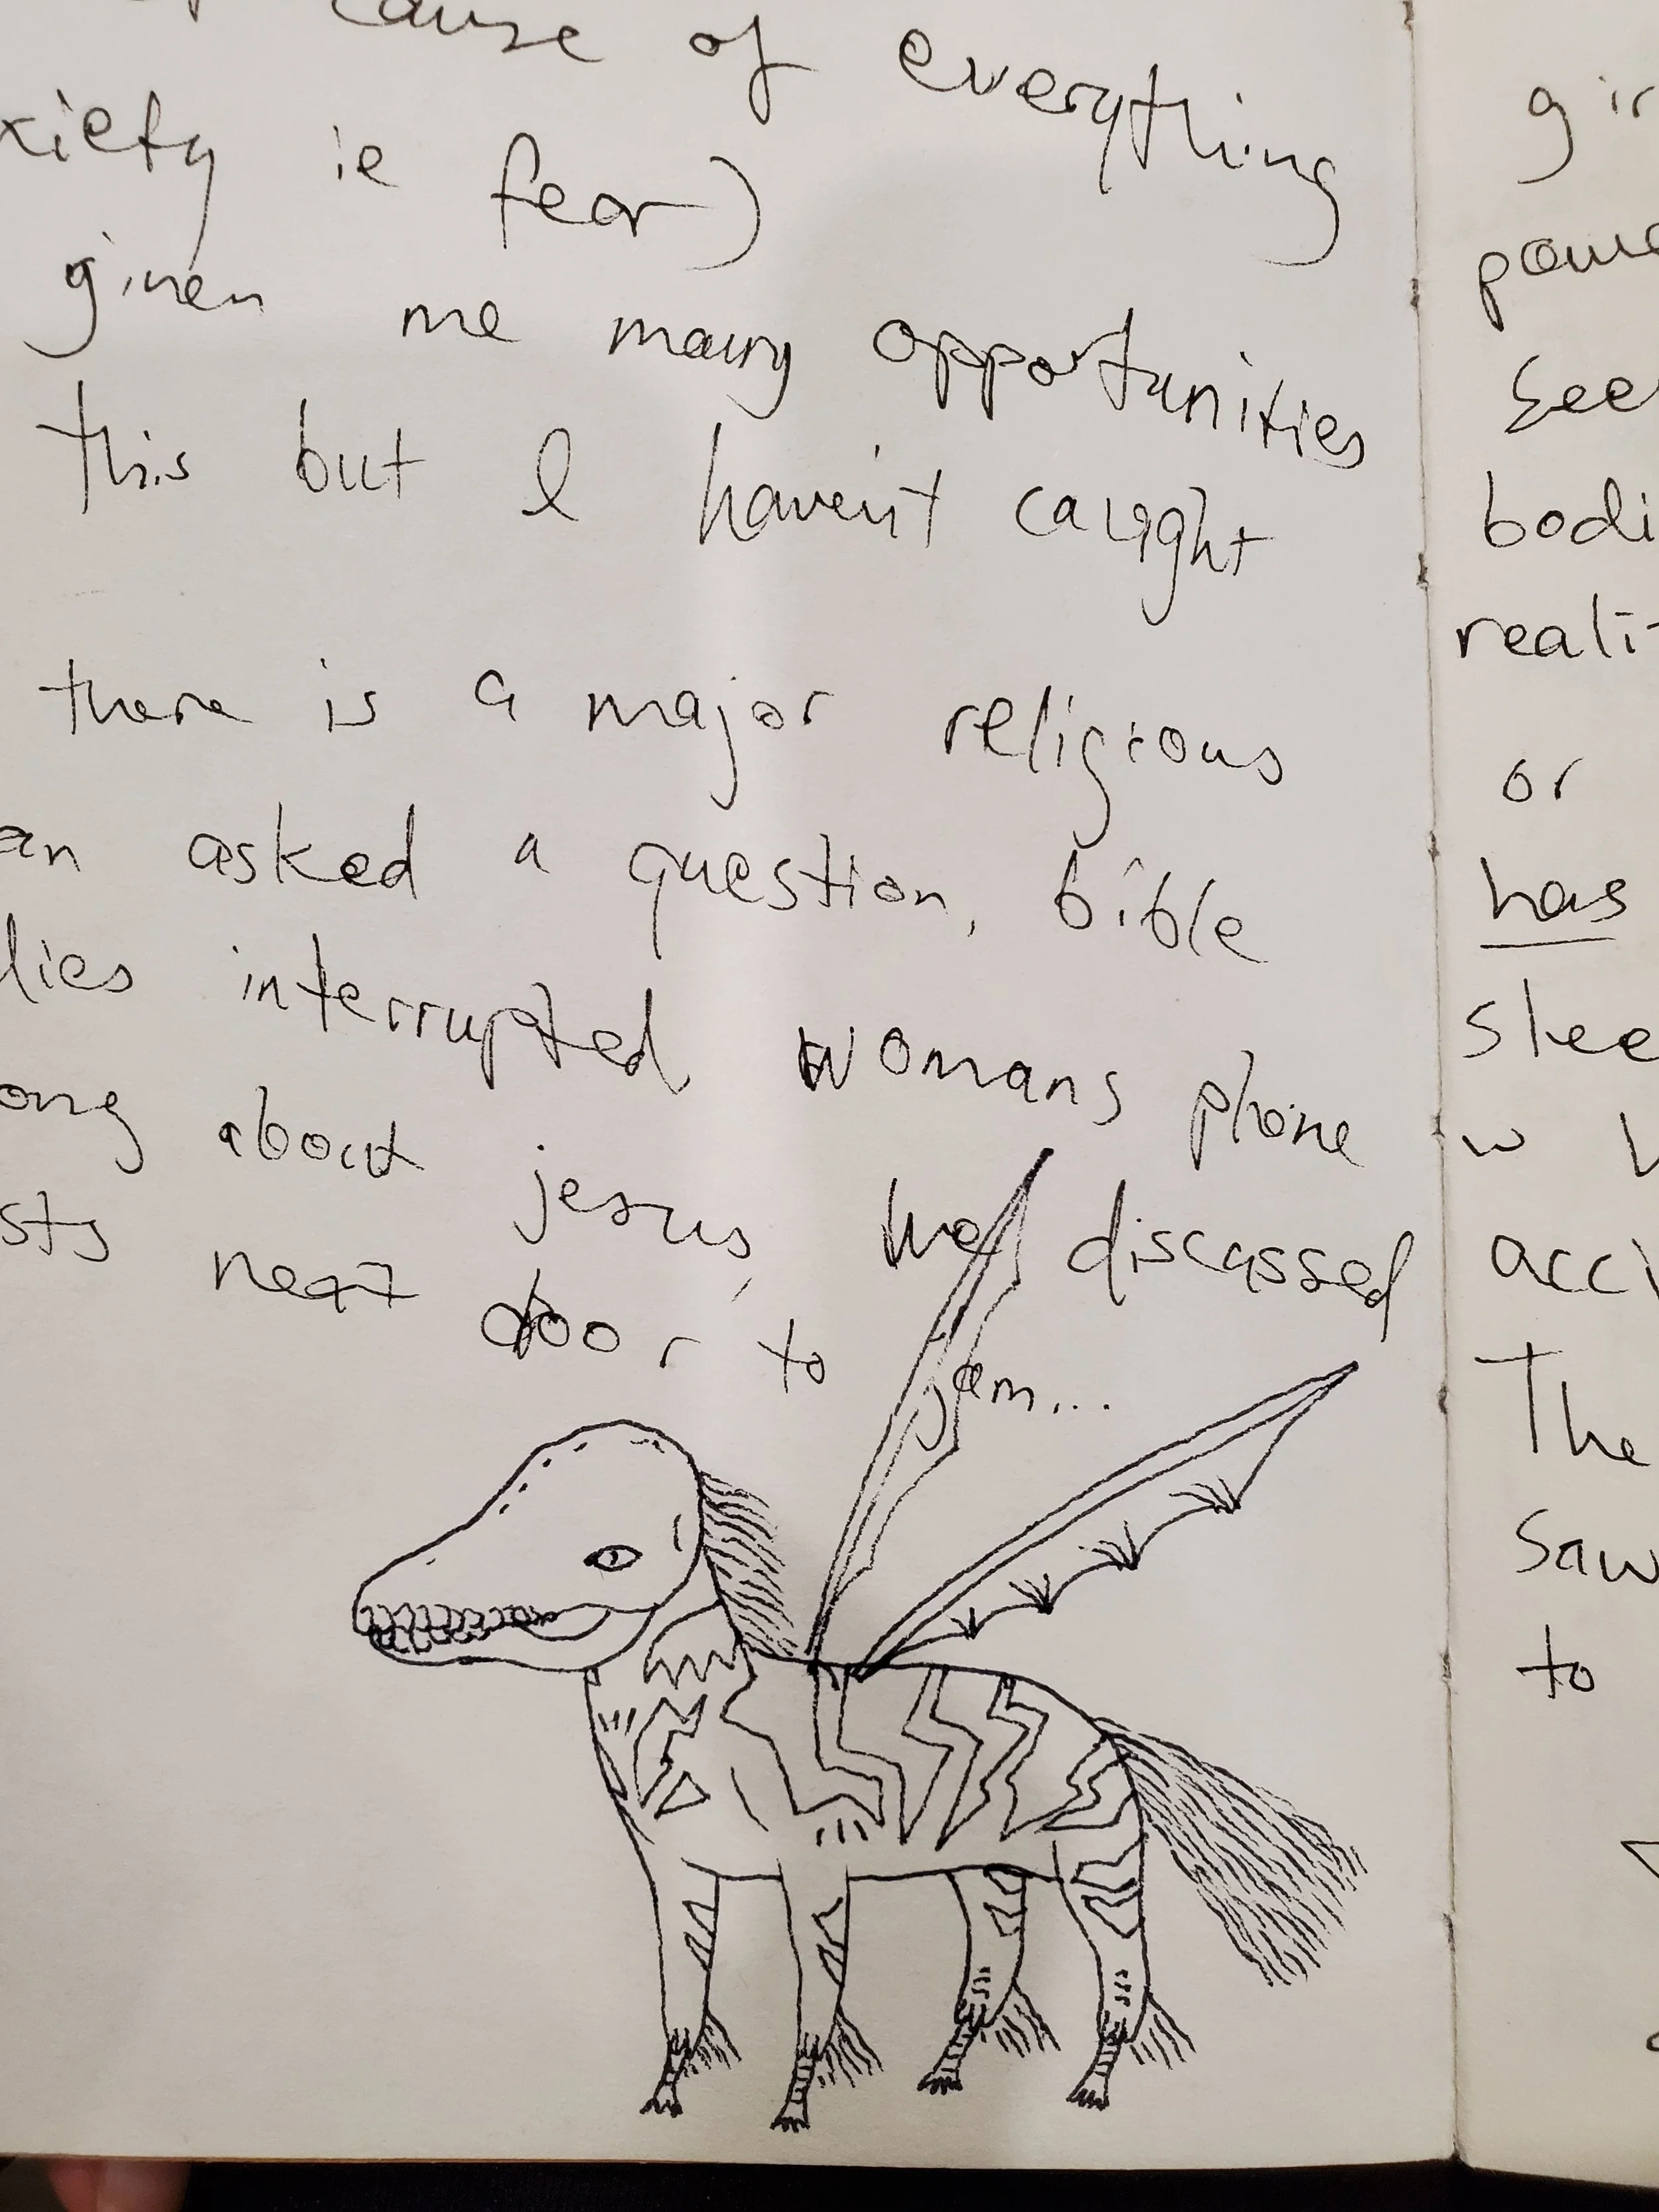 cause of everything
xiety ie fear)
given me many opportunities
this but I haven't caught
there is a major religious
an asked a question, bible
lies interrupted womans phone
ong about jesus, we discussed
sts next door to jam...
gir
powe
see
bodi
realit
or
has
slee
w
acci
The
saw
to